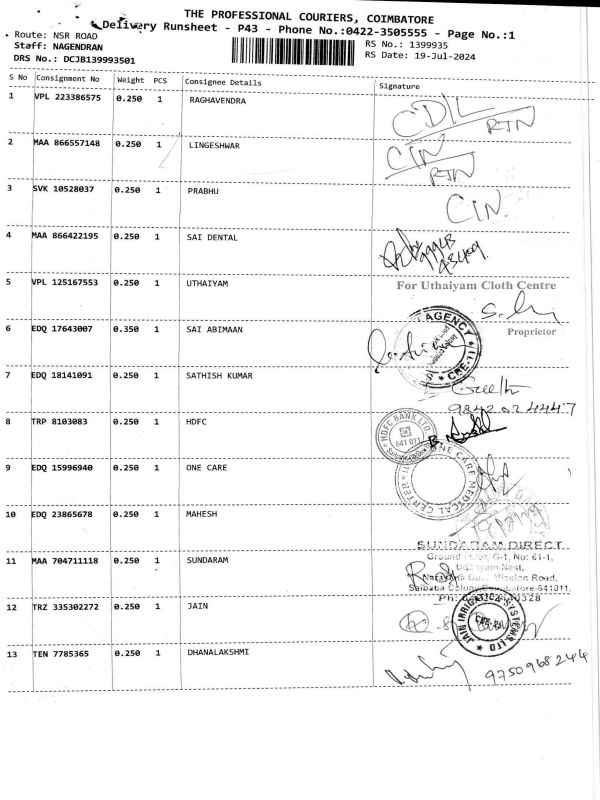 THE PROFESSIONAL COURIERS, COIMBATORE
Delivery Runsheet - P43 - Phone No.:0422-3505555 - Page No.:1
Route: NSR ROAD
Staff: NAGENDRAN
DRS No.: DCJB139993501
RS No.: 1399935
RS Date: 19-Jul-2024
S No Consignment No Weight PCS Consignee Details Signature
1 VPL 223386575 0.250 1 RAGHAVENDRA CD/L RTN
2 MAA 866557148 0.250 1 LINGESHWAR C/N RTN
3 SVK 10528037 0.250 1 PRABHU C/N.
4 MAA 866422195 0.250 1 SAI DENTAL
5 VPL 125167553 0.250 1 UTHAIYAM For Uthaiyam Cloth Centre
Proprietor
6 EDQ 17643007 0.350 1 SAI ABIMAAN AGENCY CBE-11
7 EDQ 18141091 0.250 1 SATHISH KUMAR
9842 02 4447
8 TRP 8103083 0.250 1 HDFC HDFC BANK LTD. 641 011
9 EDQ 15996940 0.250 1 ONE CARE ONE CARE MEDICAL CENTER
10 EDQ 23865678 0.250 1 MAHESH
11 MAA 704711118 0.250 1 SUNDARAM SUNDARAM DIRECT
Ground Floor, G-1, No: 61-1,
Udhayam Nest,
Mission Road,
Saibaba Colony, Coimbatore-641011.
12 TRZ 335302272 0.250 1 JAIN JAIN IRRIGATION SYSTEMS LTD
13 TEN 7785365 0.250 1 DHANALAKSHMI 9750968244